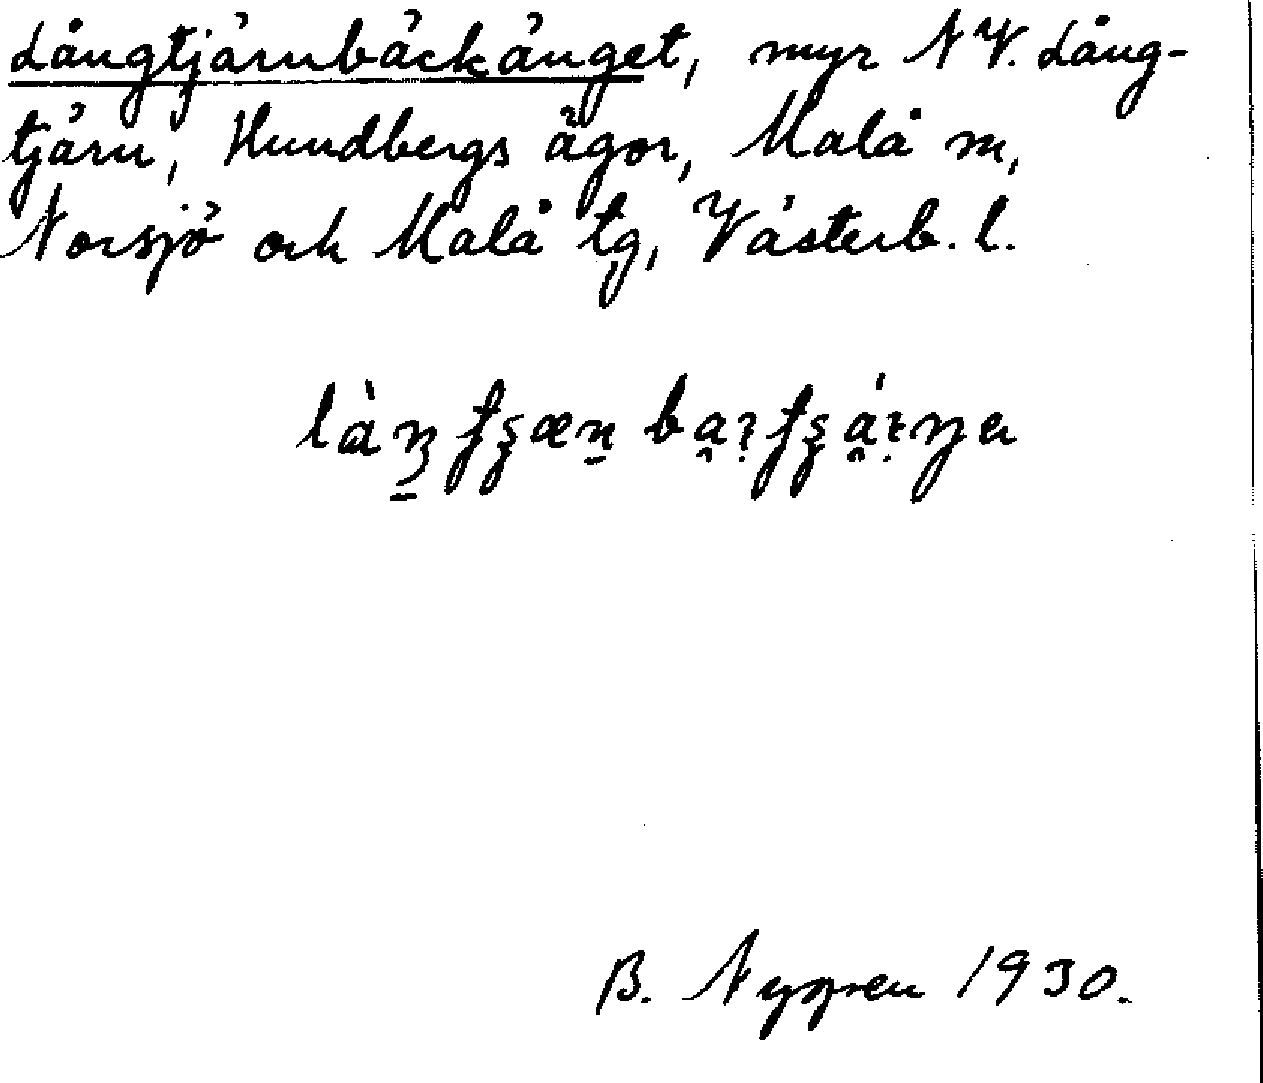 Långtjärnbäckänget, myr NV. Lång-
tjärn, Hundbergs ägor, Malå sn,
Norsjö och Malå tg, Västerb. l.
B. Nygren 1930.